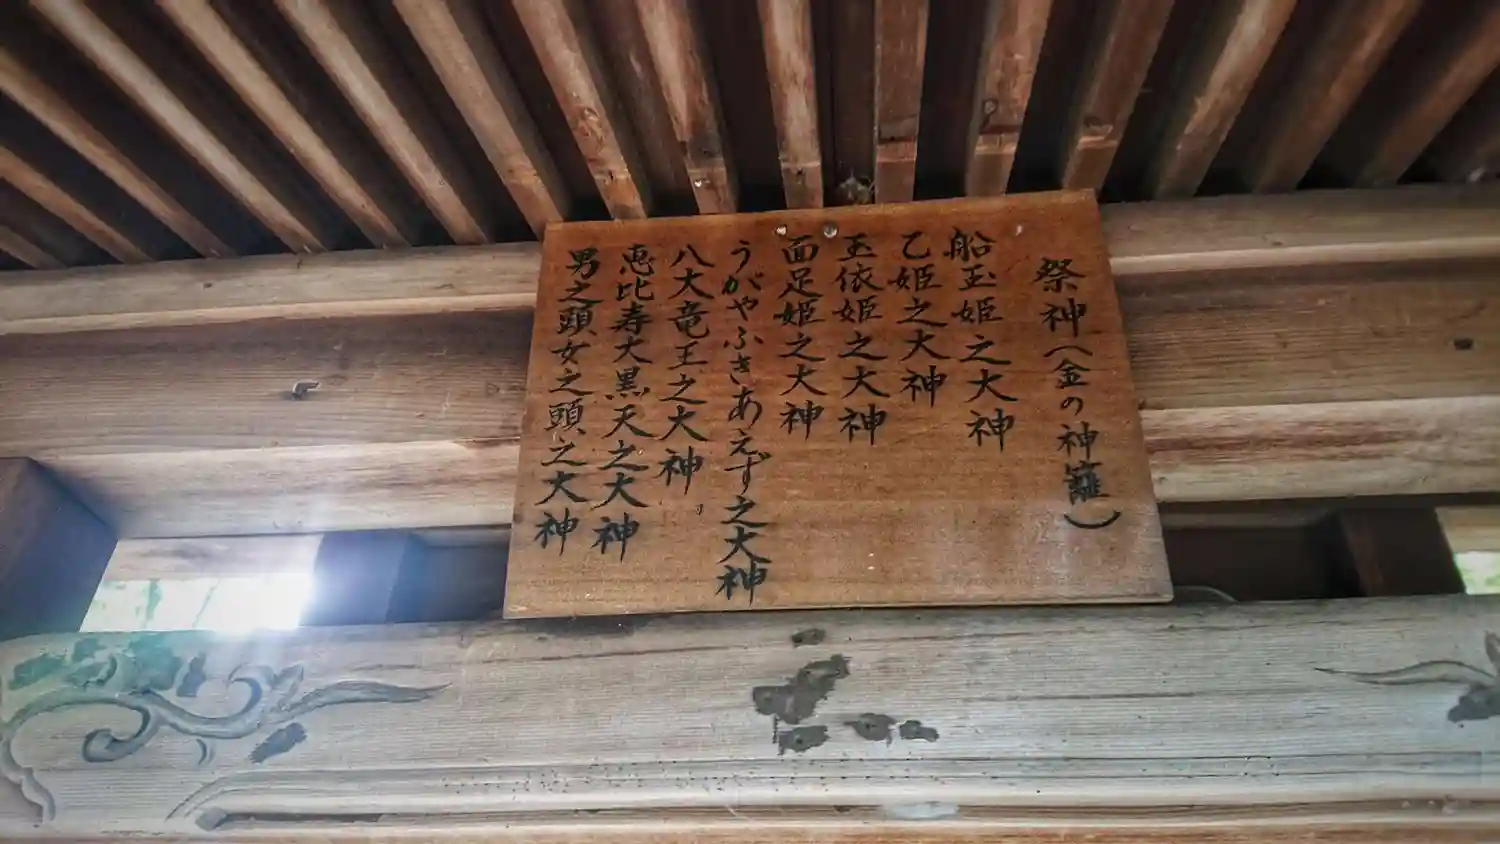 祭神(金の神籬)
船玉姫之大神
乙姫之大神
玉依姫之大神
面足姫之大神
うがやふきあえず之大神
八大竜王之大神
恵比寿大黒天之大神
男之頭女之頭之大神